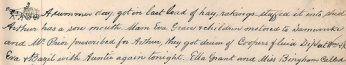 A summery day, got in last load of hay, rakings, stuffed it into shed
Arthur has a sore mouth. Mam Eva Grace & children motored to
and Mr Prior prescribed for Arthur, they got drum of Coopers fluid Dip at
Eva & Bazil with Auntie again tonight. Ella Grant and Miss Bingham called